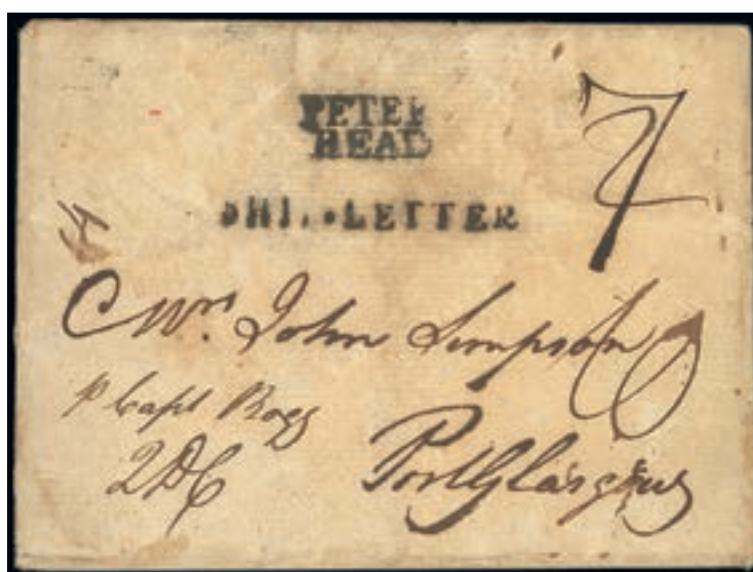 PETER
HEAD
SHIP-LETTER
7
Mrs. John Simpson
p Capt
Port Glasgow